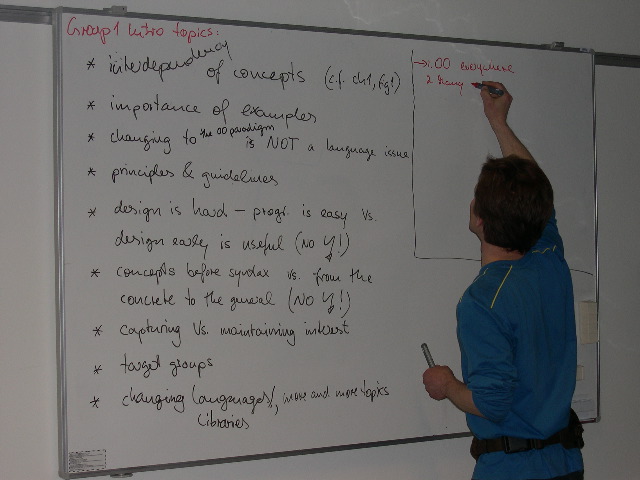 Group 1 Intro topics:
* interdependency
of concepts (c.f. ch1, fg1)
* importance of examples
* changing to the OO paradigm
is NOT a language issue
* principles & guidelines
* design is hard – progr. is easy vs.
design early is useful (NO !)
* concepts before syntax vs. from the
concrete to the general (NO !)
* capturing vs. maintaining interest
* target groups
* changing languages/, more and more topics
libraries
1. OO everywhere
2